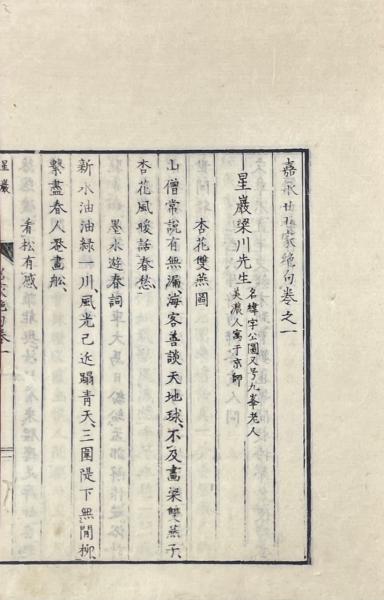 嘉永廿五家絶句卷之一
星巖梁川先生 名緯字公圖又号九峯老人
美濃人寓于京師
杏花雙燕圖
山僧常說有無漏海客善談天地球、不及畫梁雙燕子、
杏花風暖話春愁、
墨水遊春詞
新水油油綠一川、風光已近蹋青天、三圍隄下無閒柳、
繫盡春人泛畫船、
看松有感
星巖
家絶句卷一